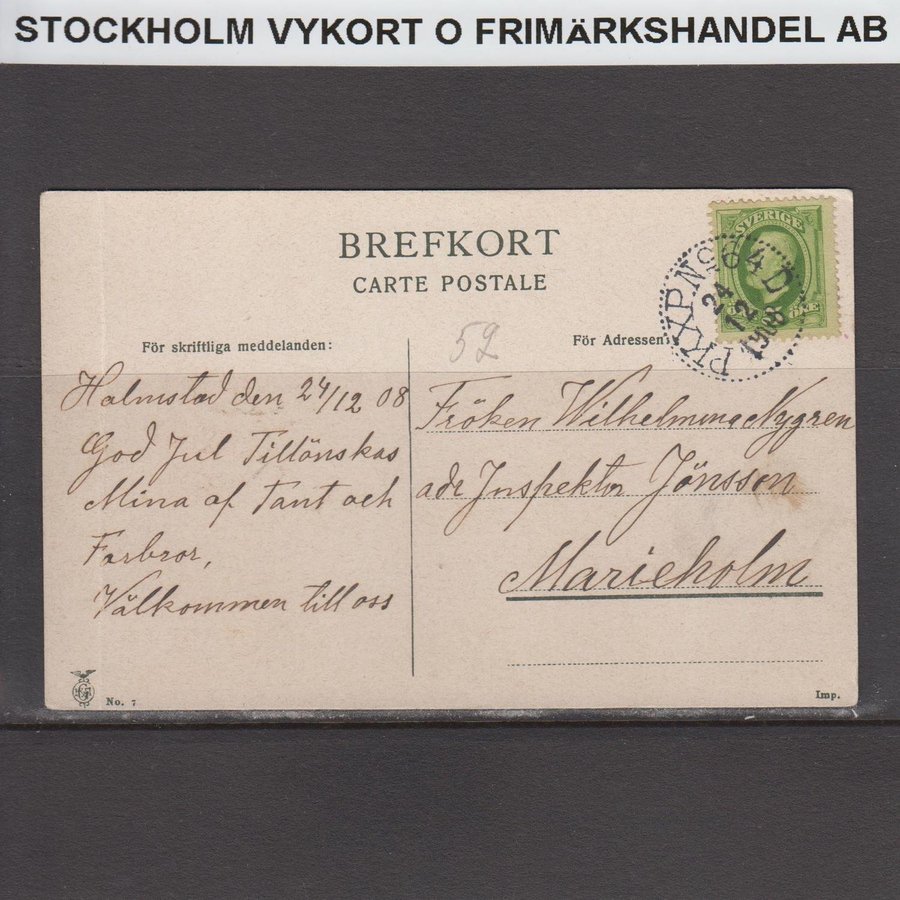 STOCKHOLM VYKORT O FRIMÄRKSHANDEL AB
BREFKORT
CARTE POSTALE
SVERIGE
ÖRE
PKXP No 64 D
24
12
1908
52
För skriftliga meddelanden:
För Adressen:
Halmstad den 24/12 08
God Jul Tillönskas
Mina af Tant och
Farbror,
Välkommen till oss
Fröken Wilhelmina Nygren
adr Inspektor Jönsson
Marieholm
No. 7
Imp.